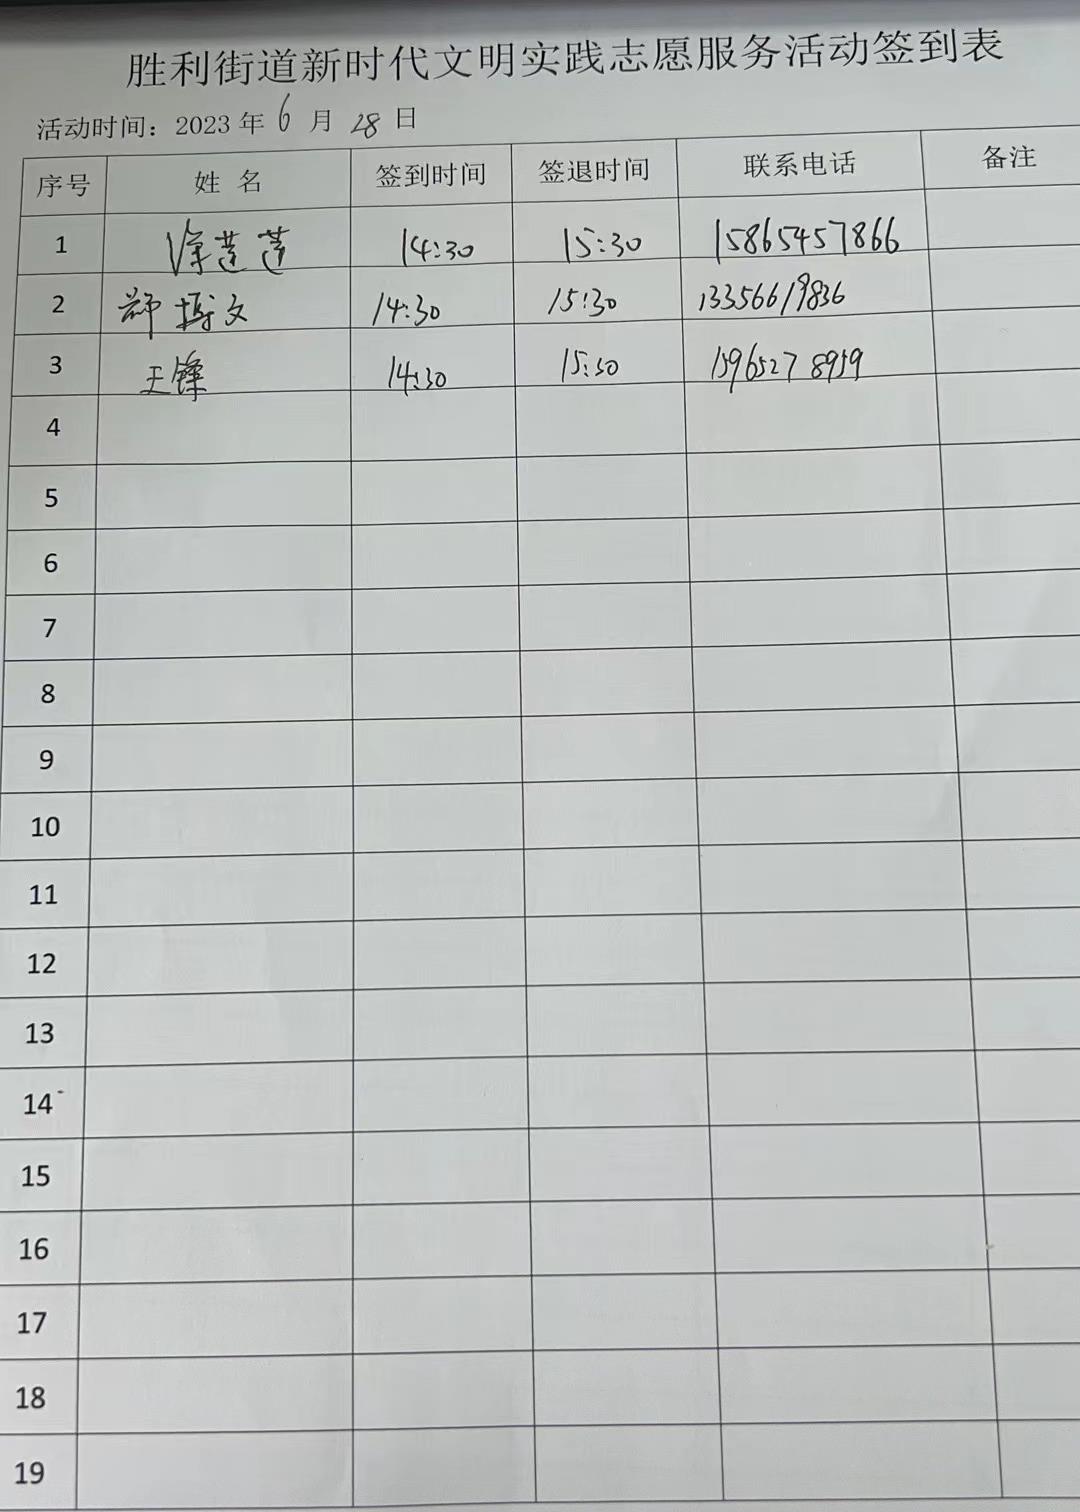 胜利街道新时代文明实践志愿服务活动签到表
活动时间：2023 年 6 月 28 日
序号 姓 名 签到时间 签退时间 联系电话 备注
1 徐莲莲 14:30 15:30 15865457866
2 郭博文 14:30 15:30 13356619836
3 王锋 14:30 15:30 15965278959
4
5
6
7
8
9
10
11
12
13
14
15
16
17
18
19